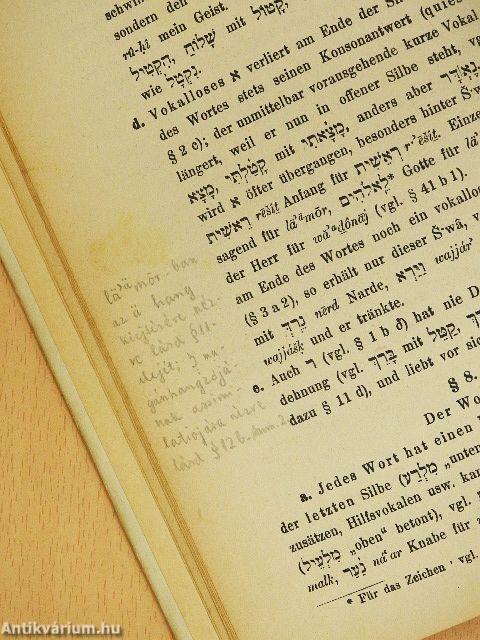 schwin
sondern den
rū-ḥī mein Geist.
הַקְטִיל, שָׁלוֹחַ mit קָטוֹל,
wie נִקְטַל.
d. Vokalloses א verliert am Ende der Sil
des Wortes stets seinen Konsonantwert (quies
§ 2 c); der unmittelbar vorausgehende kurze Vokal
längert, weil er nun in offener Silbe steht, vg
מָצָא, קָטַלְתִּי mit מָצָאתִי, anders aber נֶאְדָּר
wird א öfter übergangen, besonders hinter Š·w
רֵאשִׁית rēšīt Anfang für רְאֵשִׁית r·ʾēšīt. Einze
sagend für lāʾᵃmōr, לֵאלֹהִים* Gotte für lā
der Herr für wāʾᵃḏōnāj (vgl. § 41 b 1).
am Ende des Wortes noch ein vokallos
(§ 3 a 2), so erhält nur dieser Š·wā, v
mit נֵרְדְּ nērd Narde, וַיַּרְא wajjár
wajjášḳ und er tränkte.
e. Auch ר (vgl. § 1 b ð) hat nie D
dehnung (vgl. בֵּרֵךְ mit קִטֵּל,
dazu § 11 d), und liebt vor sic
§ 8.
Der Wo
a. Jedes Wort hat einen
der letzten Silbe (מִלְּרַע „unten
zusätzen, Hilfsvokalen usw. kan
(מִלְּעֵיל „oben" betont), vgl.
malk, נַעַר náʿar Knabe für
* Für das Zeichen · vgl.
lāʾᵃmōr-ban
az ā hang
kiejtésére néz-
ve lásd §11
elejét; J ma-
gánhangzójá-
nak assimi-
latiójára nézve
lásd §12 b. Anm. 2.
Antikvárium.hu
Antikvárium.hu